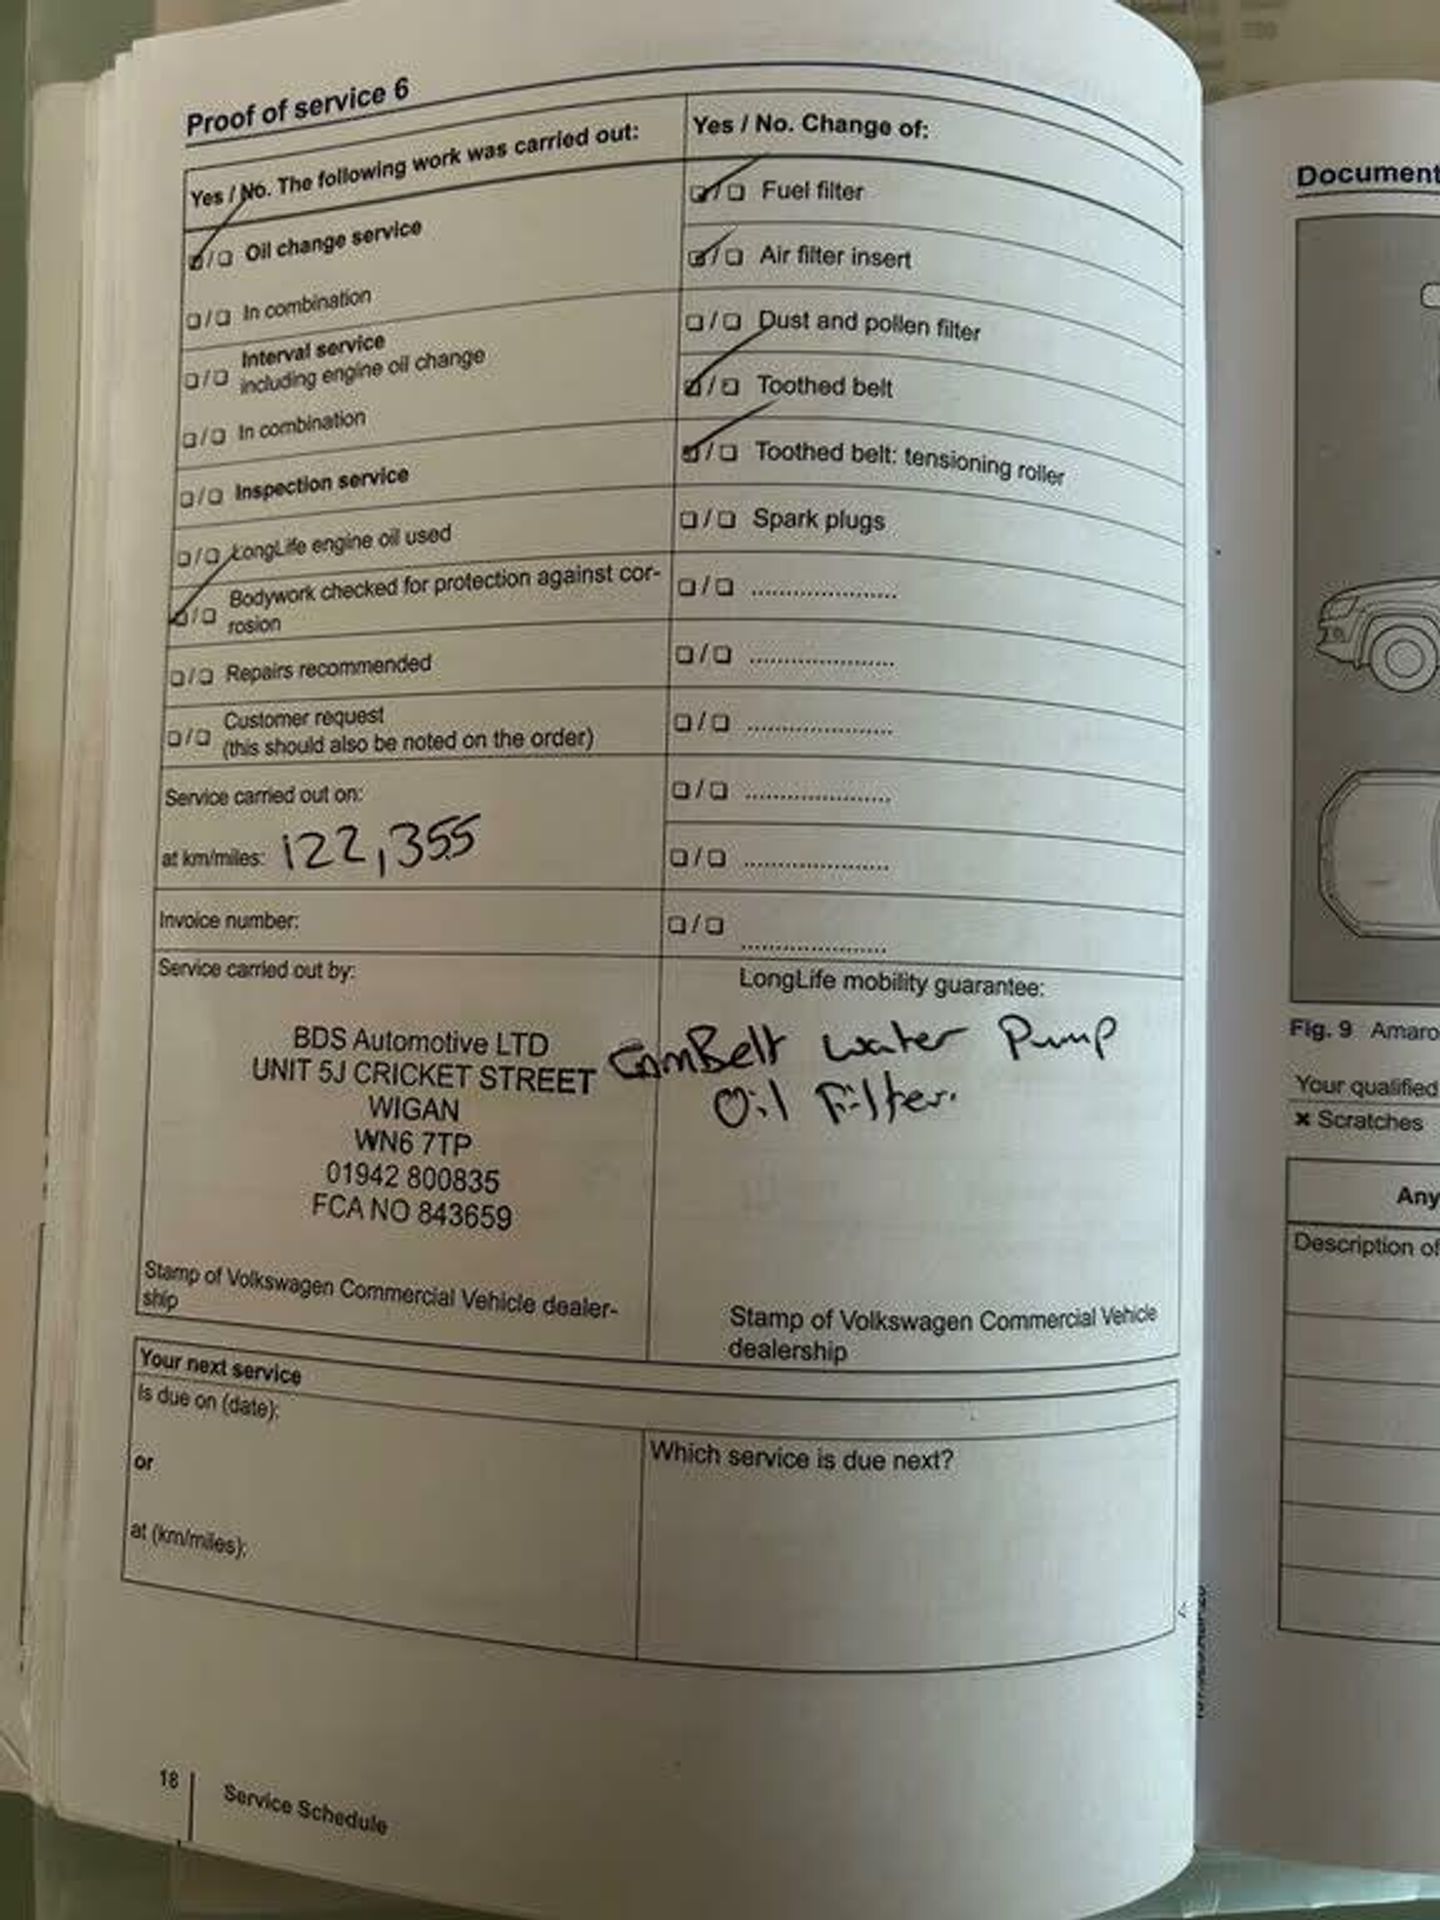 Proof of service 6
Yes / No. The following work was carried out:
❏/❏ Oil change service
❏/❏ In combination
❏/❏ Interval service
including engine oil change
❏/❏ In combination
❏/❏ Inspection service
❏/❏ LongLife engine oil used
❏/❏ Bodywork checked for protection against cor-
rosion
❏/❏ Repairs recommended
❏/❏ Customer request
(this should also be noted on the order)
Service carried out on:
at km/miles: 122,355
Invoice number:
Service carried out by:
BDS Automotive LTD
UNIT 5J CRICKET STREET
WIGAN
WN6 7TP
01942 800835
FCA NO 843659
Stamp of Volkswagen Commercial Vehicle dealer-
ship
Yes / No. Change of:
❏/❏ Fuel filter
❏/❏ Air filter insert
❏/❏ Dust and pollen filter
❏/❏ Toothed belt
❏/❏ Toothed belt: tensioning roller
❏/❏ Spark plugs
❏/❏ ......................
❏/❏ ......................
❏/❏ ......................
❏/❏ ......................
❏/❏ ......................
❏/❏ ......................
LongLife mobility guarantee:
CamBelt water Pump
Oil Filter.
Stamp of Volkswagen Commercial Vehicle
dealership
Your next service
Is due on (date):
or
at (km/miles):
Which service is due next?
18
Service Schedule
Document
Fig. 9 Amaro
Your qualified
× Scratches
Any
Description of